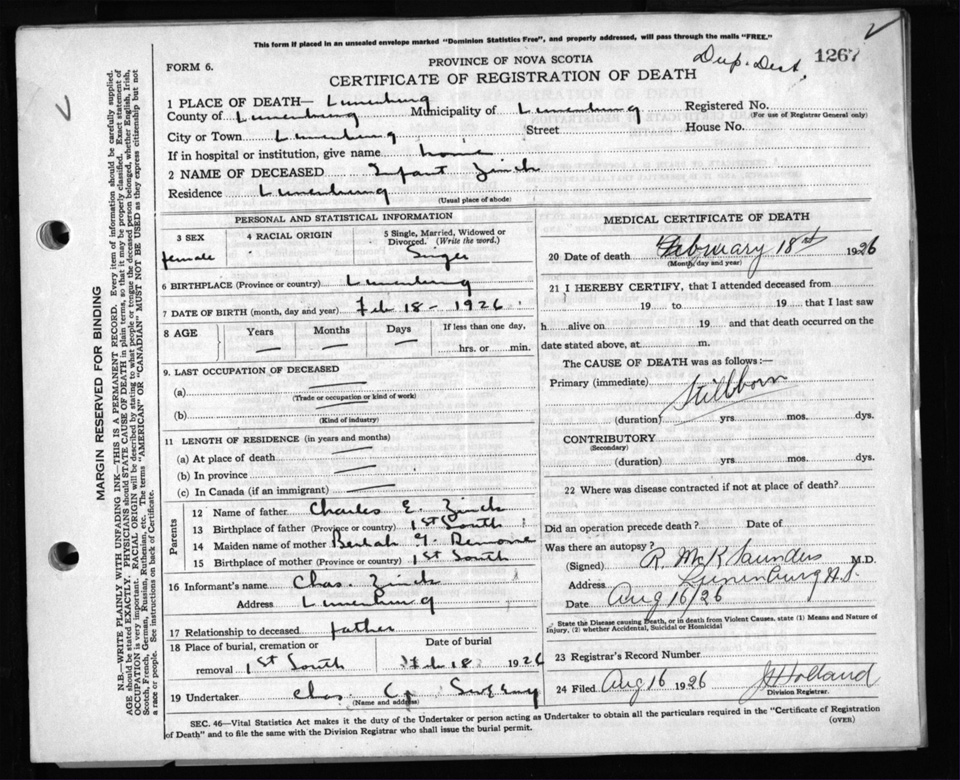 This form if placed in an unsealed envelope marked "Dominion Statistics Free", and properly addressed, will pass through the mails "FREE."
FORM 6.
PROVINCE OF NOVA SCOTIA
Dup. Dist,
1267
CERTIFICATE OF REGISTRATION OF DEATH
1 PLACE OF DEATH— Lunenburg
County of Lunenburg Municipality of Lunenburg Registered No.
(For use of Registrar General only)
City or Town Lunenburg Street House No.
If in hospital or institution, give name home
2 NAME OF DECEASED Infant Zinck
Residence Lunenburg
(Usual place of abode)
PERSONAL AND STATISTICAL INFORMATION
3 SEX female
4 RACIAL ORIGIN
5 Single, Married, Widowed or Divorced. (Write the word.)
6 BIRTHPLACE (Province or country) Lunenburg
7 DATE OF BIRTH (month, day and year) Feb 18 - 1926
8 AGE Years Months Days If less than one day,
hrs. or min.
9. LAST OCCUPATION OF DECEASED
(a)
(Trade or occupation or kind of work)
(b)
(Kind of industry)
11 LENGTH OF RESIDENCE (in years and months)
(a) At place of death
(b) In province
(c) In Canada (if an immigrant)
Parents
12 Name of father Charles E. Zinck
13 Birthplace of father (Province or country) 1st South
14 Maiden name of mother Beulah
15 Birthplace of mother (Province or country) 1st South
16 Informant's name Chas. Zinck
Address Lunenburg
17 Relationship to deceased father
18 Place of burial, cremation or Date of burial
removal 1st South Feb 18 1926
19 Undertaker Chas
(Name and address)
MEDICAL CERTIFICATE OF DEATH
20 Date of death February 18th 1926
(Month, day and year)
21 I HEREBY CERTIFY, that I attended deceased from
19 to 19 that I last saw
h alive on 19 and that death occurred on the
date stated above, at m.
The CAUSE OF DEATH was as follows:—
Primary (immediate) Stillborn
(duration) yrs. mos. dys.
CONTRIBUTORY
(Secondary)
(duration) yrs. mos. dys.
22 Where was disease contracted if not at place of death?
Did an operation precede death? Date of
Was there an autopsy?
(Signed) R. McK Saunders M.D.
Address Lunenburg N.S.
Date Aug 16/26
State the Disease causing Death, or in death from Violent Causes, state (1) Means and Nature of
Injury, (2) whether Accidental, Suicidal or Homicidal
23 Registrar's Record Number
24 Filed Aug 16 1926 J Holland
Division Registrar.
SEC. 46—Vital Statistics Act makes it the duty of the Undertaker or person acting as Undertaker to obtain all the particulars required in the "Certificate of Registration
of Death" and to file the same with the Division Registrar who shall issue the burial permit.
(OVER)
MARGIN RESERVED FOR BINDING
N.B.—WRITE PLAINLY WITH UNFADING INK—THIS IS A PERMANENT RECORD. Every item of information should be carefully supplied.
AGE should be stated EXACTLY. PHYSICIANS should STATE CAUSE OF DEATH in plain terms, so that it may be properly classified. Exact statement of
OCCUPATION is very important. RACIAL ORIGIN will be described by stating to what people or tongue the deceased person belonged, whether English, Irish,
Scotch, French, German, Russian, Ruthenian, etc. The terms "AMERICAN" OR "CANADIAN" MUST NOT BE USED as they express citizenship but not
a race or people. See instructions on back of Certificate.